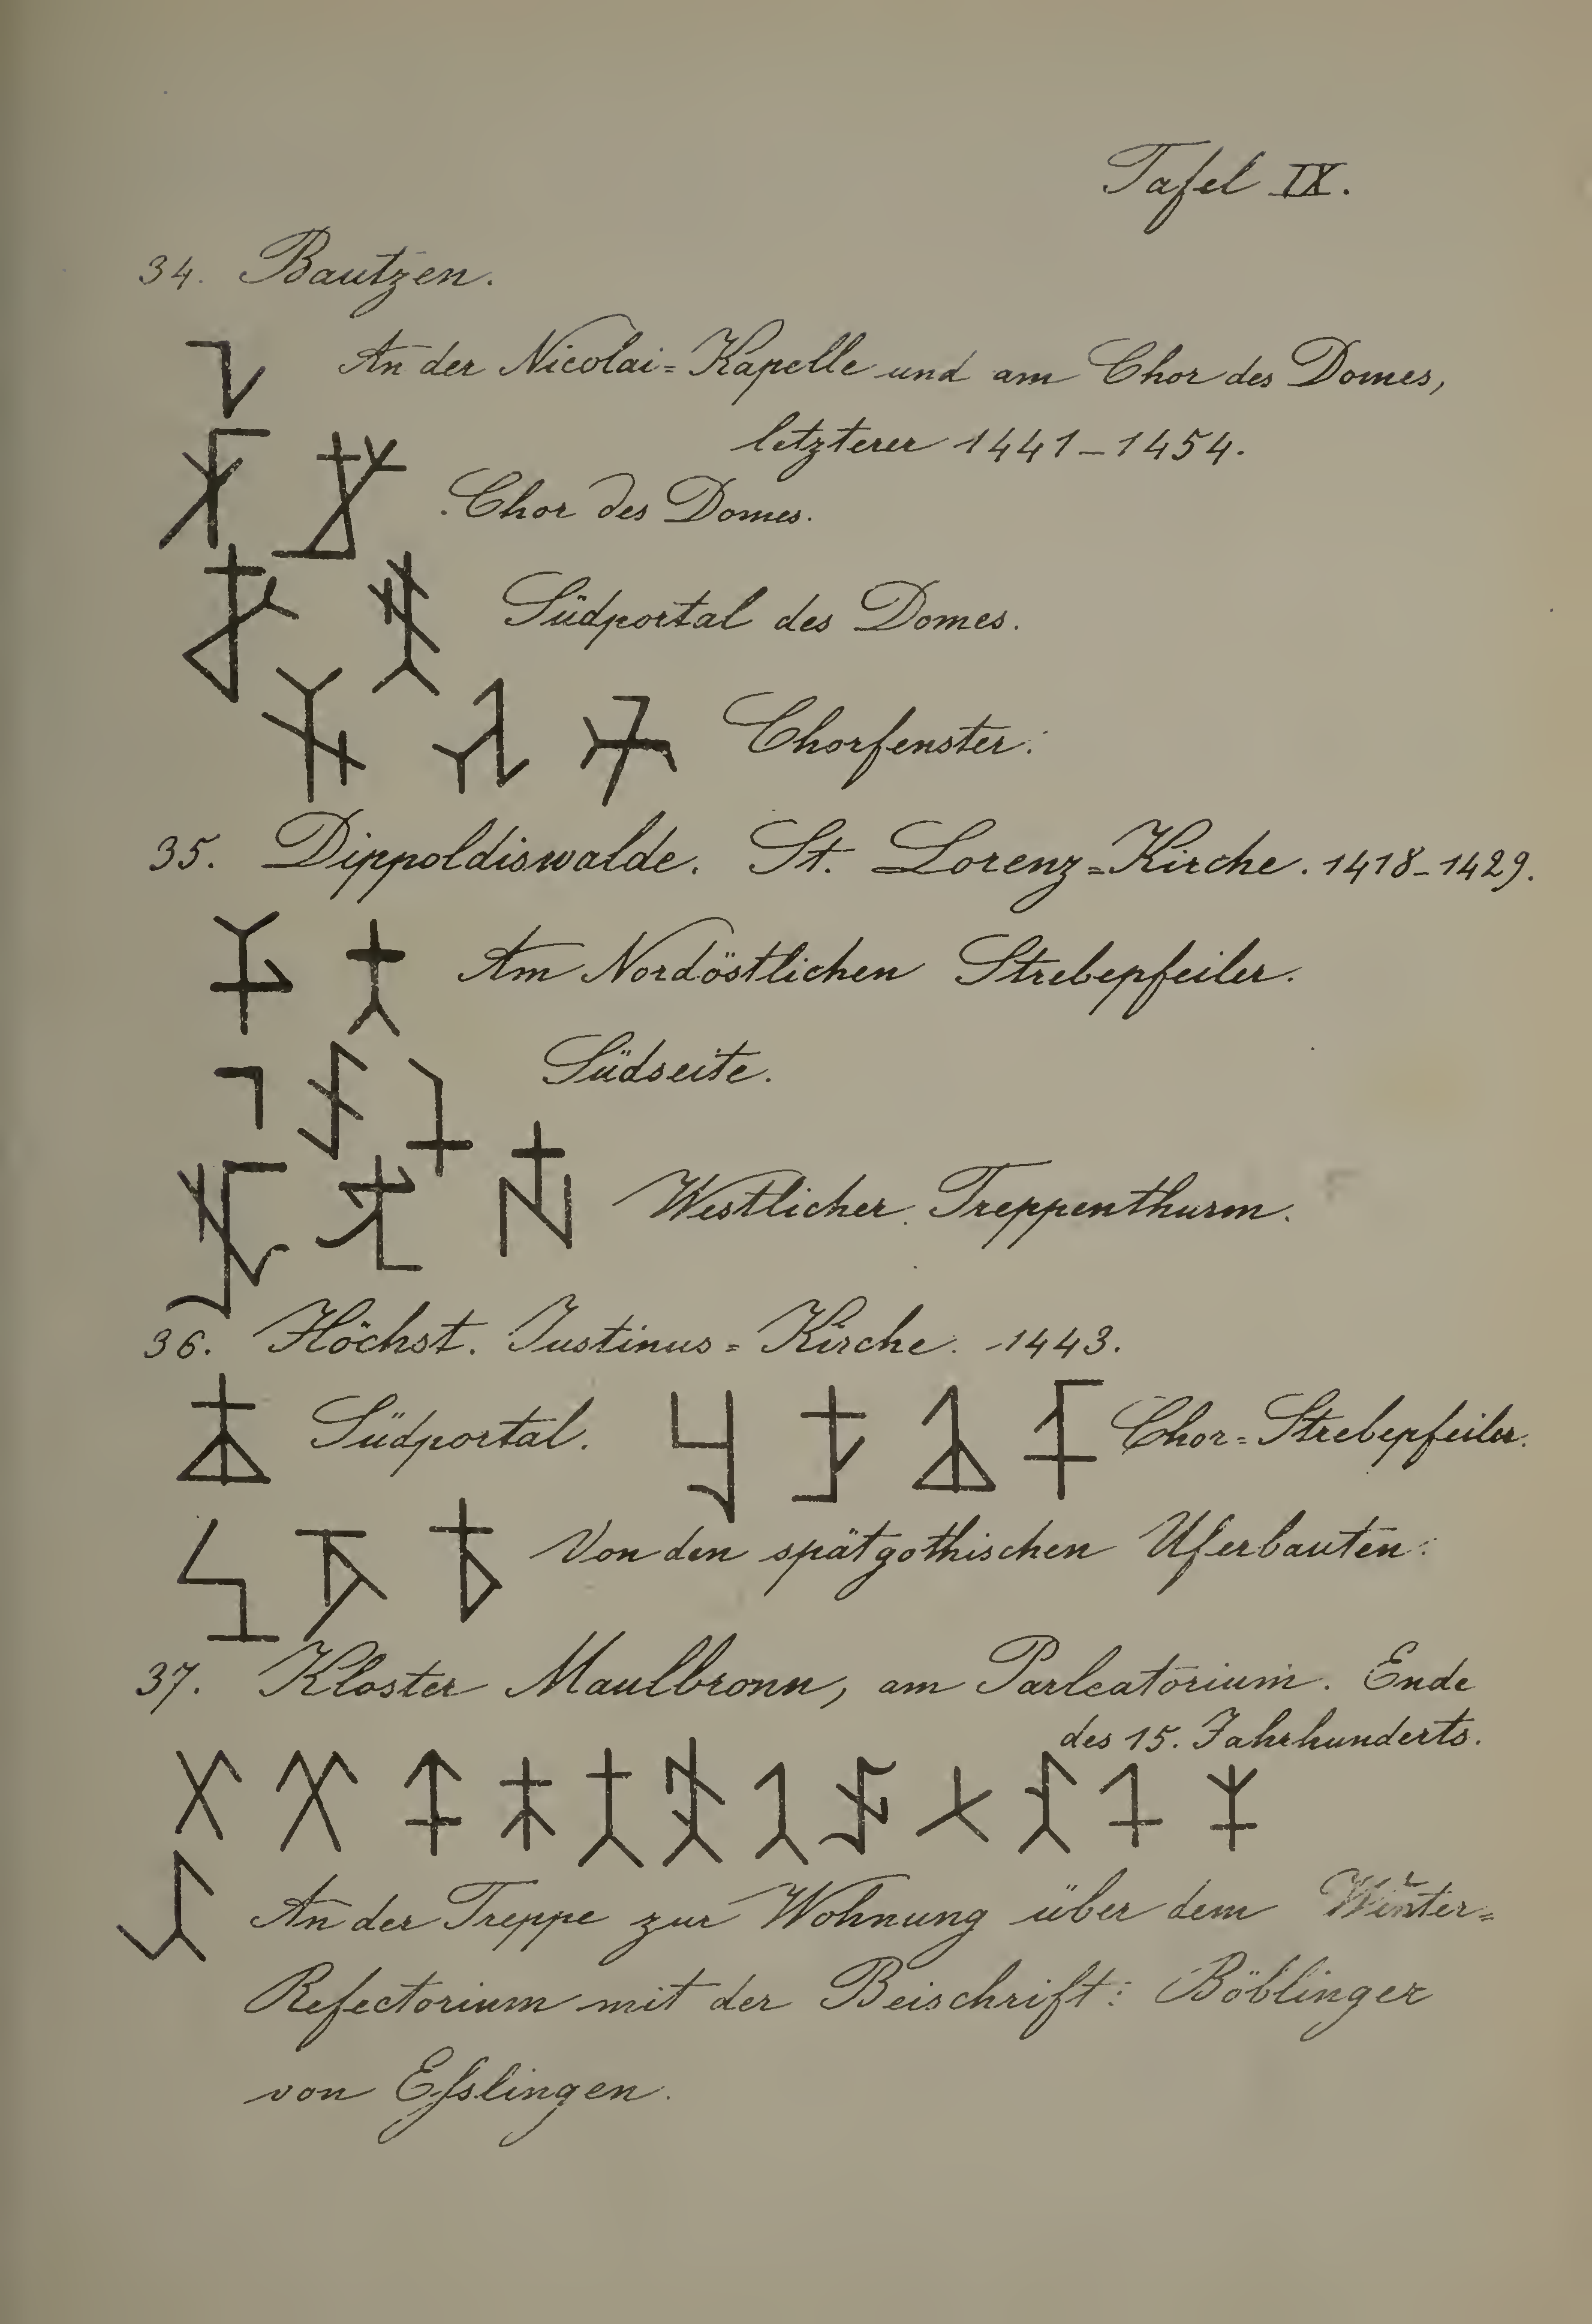 Tafel IX.
34. Bautzen.
An der Nicolai=Kapelle und am Chor des Domes,
letzterer 1441–1454.
Chor des Domes.
Südportal des Domes.
Chorfenster.
35. Dippoldiswalde. St. Lorenz=Kirche. 1418–1429.
Am Nordöstlichen Strebepfeiler.
Südseite.
Westlicher Treppenthurm.
36. Höchst. Justinus=Kirche. 1443.
Südportal. Chor=Strebepfeiler.
Von den spätgothischen Uferbauten.
37. Kloster Maulbronn, am Parleatorium. Ende
des 15. Jahrhunderts.
An der Treppe zur Wohnung über dem Winter=
Refectorium mit der Beischrift: Böblinger
von Eſslingen.